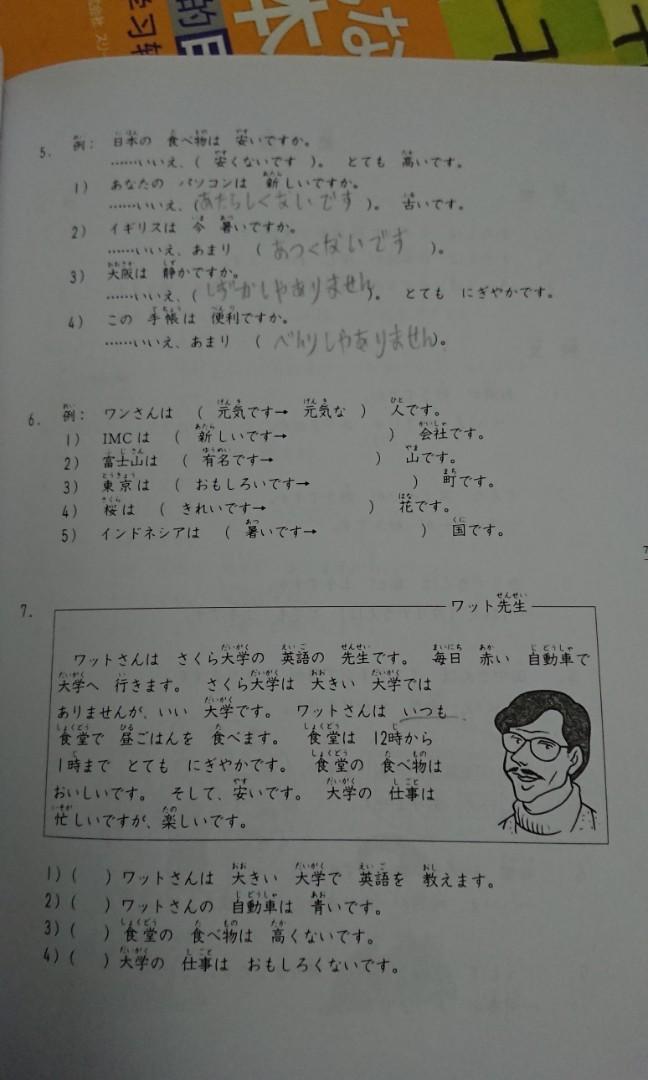 んな
本
的日
学习
5. 例： 日本の 食べ物は 安いですか。
……いいえ、( 安くないです )。 とても 高いです。
1) あなたの パソコンは 新しいですか。
……いいえ、(あたらしくないです )。 古いです。
2) イギリスは 今 暑いですか。
……いいえ、あまり ( あつくないです )。
3) 大阪は 静かですか。
……いいえ、( しずかしゃありません )。 とても にぎやかです。
4) この 手帳は 便利ですか。
……いいえ、あまり ( べんりしゃありません)。
6. 例： ワンさんは ( 元気です→ 元気な ) 人です。
1) IMCは ( 新しいです→ ) 会社です。
2) 富士山は ( 有名です→ ) 山です。
3) 東京は ( おもしろいです→ ) 町です。
4) 桜は ( きれいです→ ) 花です。
5) インドネシアは ( 暑いです→ ) 国です。
7.
ワット先生
ワットさんは さくら大学の 英語の 先生です。 毎日 赤い 自動車で
大学へ 行きます。 さくら大学は 大きい 大学では
ありませんが、いい 大学です。 ワットさんは いつも
食堂で 昼ごはんを 食べます。 食堂は 12時から
1時まで とても にぎやかです。 食堂の 食べ物は
おいしいです。 そして、安いです。 大学の 仕事は
忙しいですが、楽しいです。
1) ( ) ワットさんは 大きい 大学で 英語を 教えます。
2) ( ) ワットさんの 自動車は 青いです。
3) ( ) 食堂の 食べ物は 高くないです。
4) ( ) 大学の 仕事は おもしろくないです。